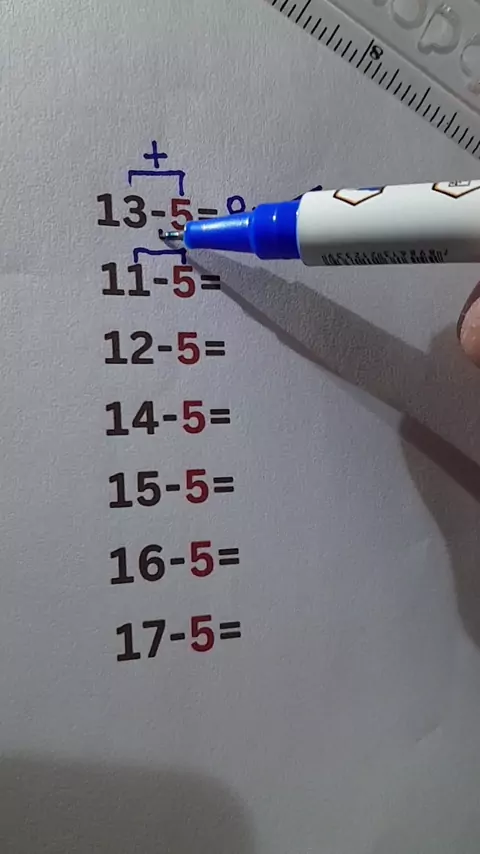 8
+
13-5=8
11-5=
12-5=
14-5=
15-5=
16-5=
17-5=